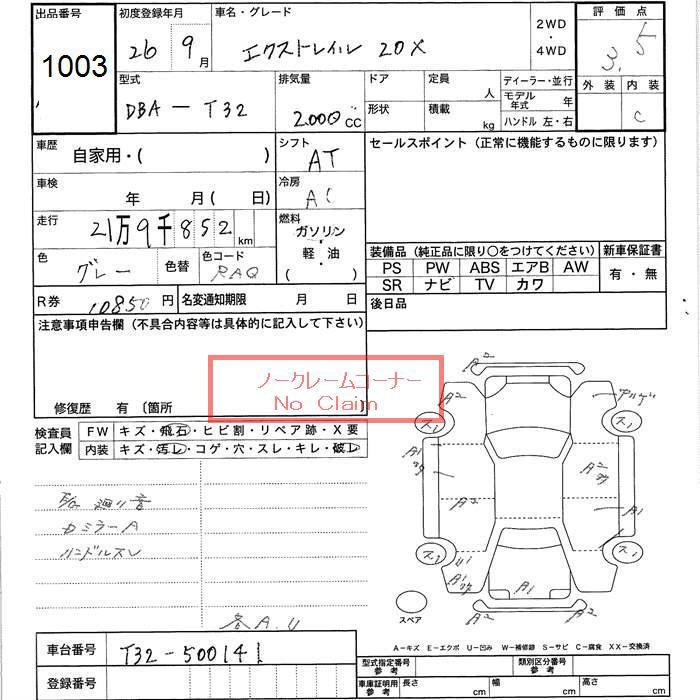 出品番号 初度登録年月 車名・グレード 2WD・4WD 評価点
1003 26 9月 エクストレイル 20X 3.5
型式 排気量 ドア 定員 人 ディーラー・並行 外装 内装
DBA-T32 2000CC 形状 積載 kg モデル年式 年 C
ハンドル 左・右
車歴 自家用・( ) シフト AT セールスポイント(正常に機能するものに限ります)
車検 年 月( 日) 冷房 AC
走行 21万9千852km 燃料 ガソリン・軽・油 ( )
装備品(純正品に限り○をつけてください) 新車保証書
色 グレー 色替 色コード RAQ PS PW ABS エアB AW 有・無
SR ナビ TV カワ
R券 10850円 名変通知期限 月 日 後日品
注意事項申告欄(不具合内容等は具体的に記入して下さい)
ノークレームコーナー
No Claim
修復歴 有 〔箇所
検査員記入欄 FW キズ・飛石・ヒビ割・リペア跡・X要
内装 キズ・汚レ・コゲ・穴・スレ・キレ・破レ
E/G 廻り音
カミラーA
ハンドルスレ
各A.U
A2 A2
A2 アルゲ
ス1 ス1
A1
A2 A2
A1
ス1 ス1
U1
A1 A1
A2 A2
スペア
A-キズ E-エクボ U-凹み W-補修跡 S-サビ C-腐食 XX-交換済
車台番号 T32-500141
登録番号
型式指定番号 参考 類別区分番号 参考
車庫証明用 参考 長さ cm 幅 cm 高さ cm